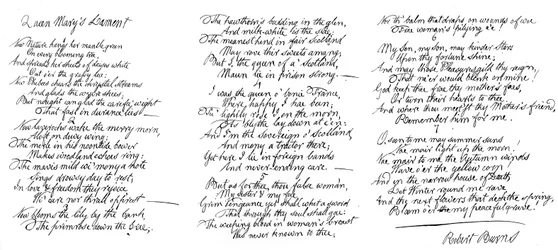 Queen Mary's Lament
Now Nature hangs her mantle green
On every blooming tree,
And spreads her sheets of daisies white
Out o'er the grassy lea:
Now Phebus chears the crystal streams
And glads the azure skies,
But nought can glad the weary wight
That fast in durance lies.
Now laverocks wake the merry morn,
Aloft on dewy wing;
The merle in his noontide bower
Makes woodland echoes ring;
The mavis mild wi' mony a note
Sings drowsy day to rest;
In love & freedom they rejoice
Wi' care nor thrall opprest.
Now blooms the lily by the bank,
The primrose down the brae;
The hawthorn's budding in the glen,
And milk-white is the slae:
The meanest hind in fair Scotland
May rove their sweets amang;
But I, the queen of a' Scotland,
Maun lie in prison strang.
I was the queen o' bonie France,
Where happy I hae been;
Fu' lightly rase I on the morn,
As blythe lay down at e'en:
And I'm the sovereign of Scotland,
And mony a traitor there;
Yet here I lie in foreign bands
And never-ending care.
But as for thee, thou false woman,
My sister & my fae,
Grim vengeance yet shall whet a sword
That through thy soul shall gae:
The weeping blood in woman's breast
Was never known to thee;
Nor th' balm that draps on wounds of woe
Frae woman's pitying e'e.
6
My son, my son, may kinder stars
Upon thy fortune shine:
And may those pleasures gild thy reign,
That ne'er wad blink on mine
God keep thee frae thy mother's faes,
Or turn their hearts to thee:
And where thou meet'st thy Mother's friend,
Remember him for me.
O soon to me may summer suns
Nae mair light up the morn;
Nae mair to me the Autumn winds
Wave o'er the yellow corn;
And in the narrow house of death
Let Winter round me rave
And the next flowers that deck the spring,
Bloom o'er my peaceful grave.
Robert Burns